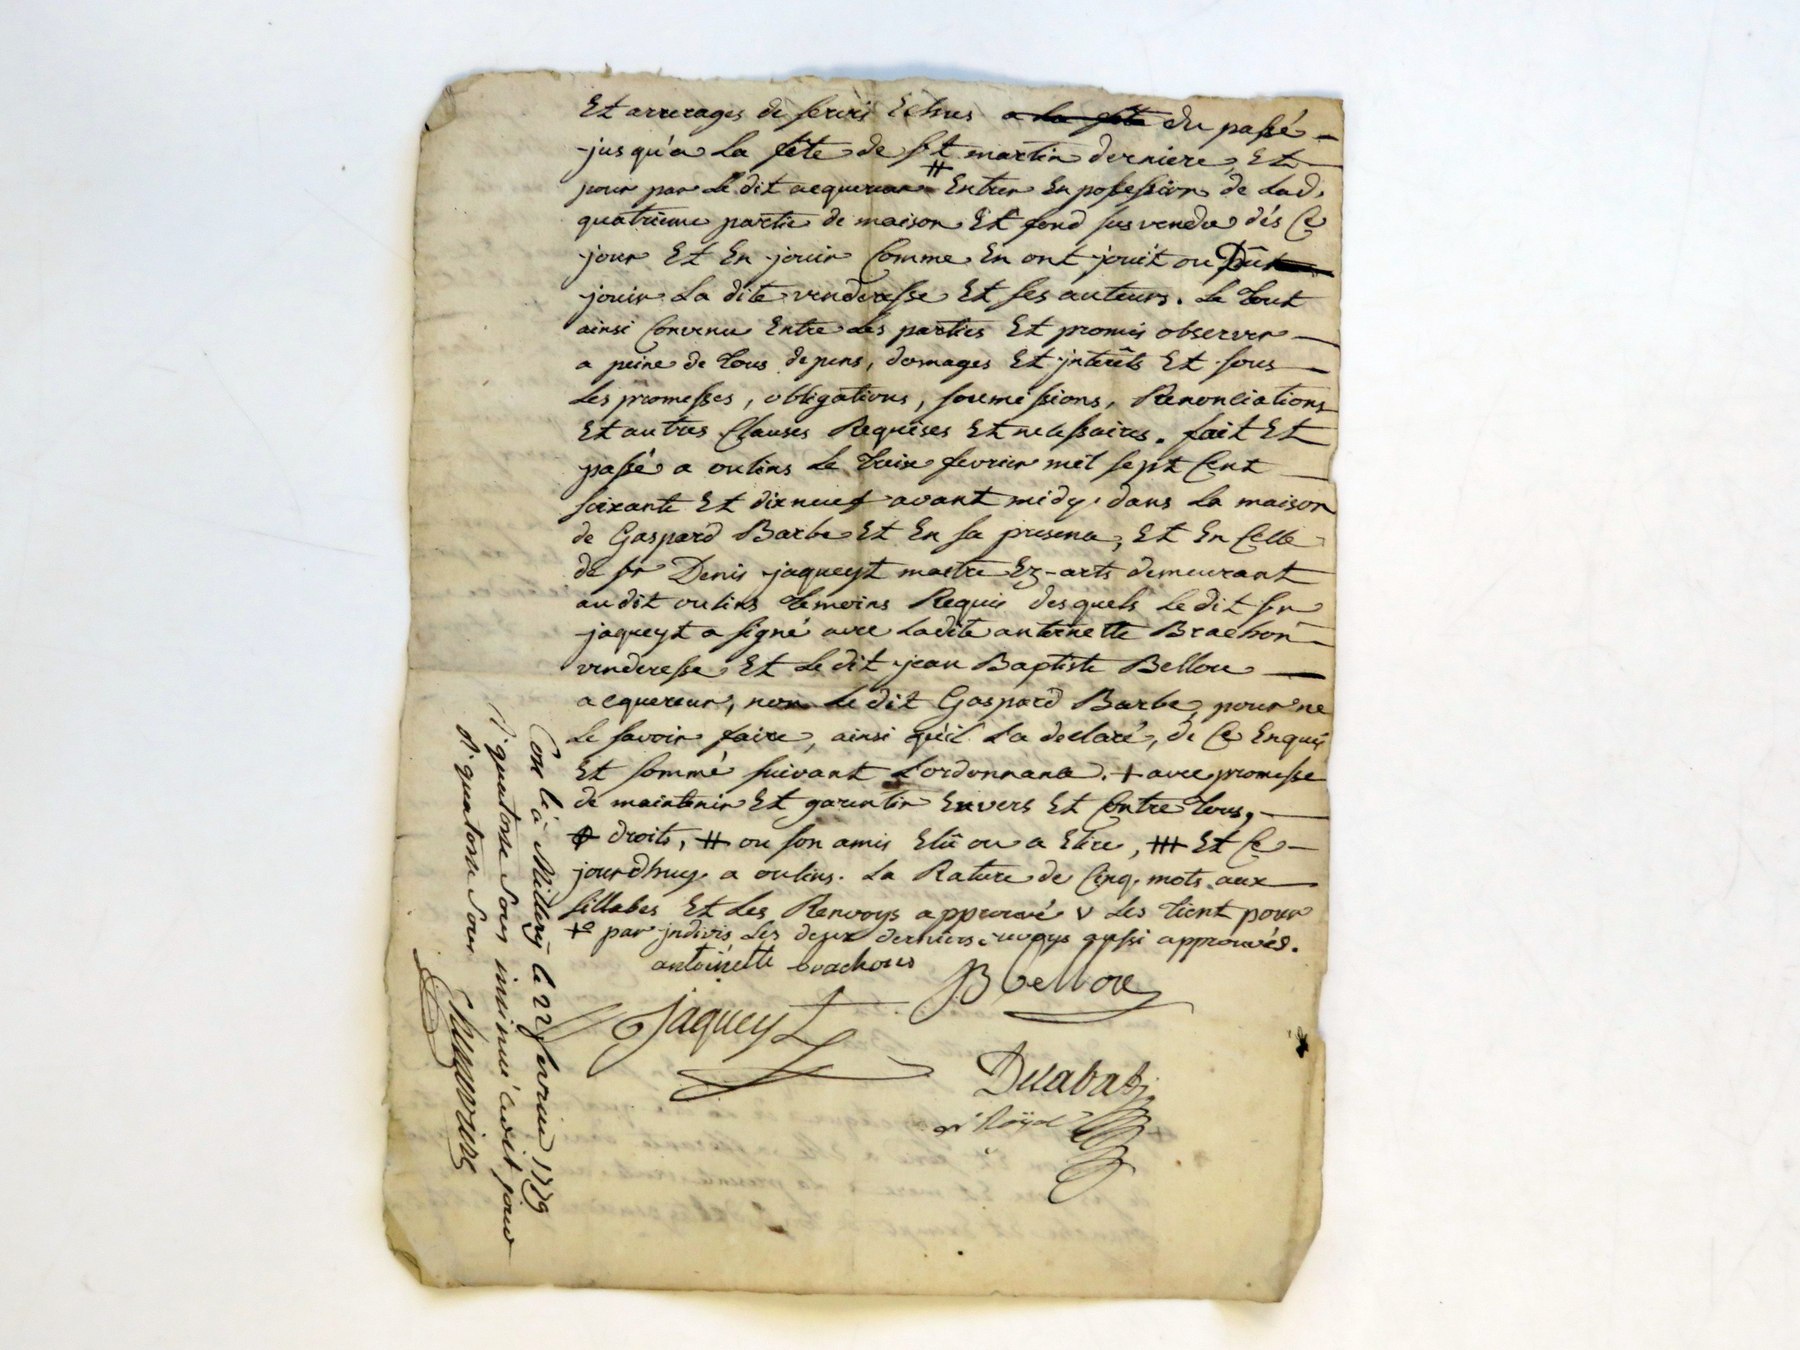 Et arrerages de servis Echus a la fête du passé
jusqu'a La fête de st martin derniere, Et
pour par Le dit acquereur # Entrer En possession de Lad.
quatrieme partie de maison Et fond susvendu dès Ce
jour Et En jouir Comme En ont jouit ou Dû
jouir La dite venderesse Et ses auteurs. Le tout
ainsi Convenu Entre Les parties Et promis observer
a peine de tous depens, domages Et jnterêts Et sous
Les promesses, obligations, soumessions, Renonciations
Et autres Clauses Requises Et necessaires. fait Et
passé a oulins Le treize fevrier mil sept Cent
soixante Et dixneuf avant midy. dans La maison
de Gaspard Barbe Et En sa presence, Et En Celle
de sr Denis jaqueyt maitre Ez-arts demeurant
au dit oulins temoins Requis desquels Le dit sr
jaqueyt a signé avec Ladite antoinette Brachon
venderesse Et Le dit jean Baptiste Belloue
acquereur, non Le dit Gaspard Barbe, pour ne
Le savoir faire, ainsi qu'il La declaré, de Ce Enquis
Et sommé suivant L'ordonnance. + avec promesse
de maintenir Et garentir Envers Et Contre tous,
droits, # ou son amis Elû ou a Elire, Et Ce
jourdhuy. a oulins. La Rature de Cinq mots aux
sillabes Et Les Renvoys approuvé v Les tient pour
par jndivis Les deux derniers renvoys aussi approuvés.
antoinette brachons
JB belloue
Jaqueyt
Dulabatz
nre Royal
Con lé à Millery le 22 fevrier 1779
R. quatorze sous insinué ledit jour
R. quatorze sous